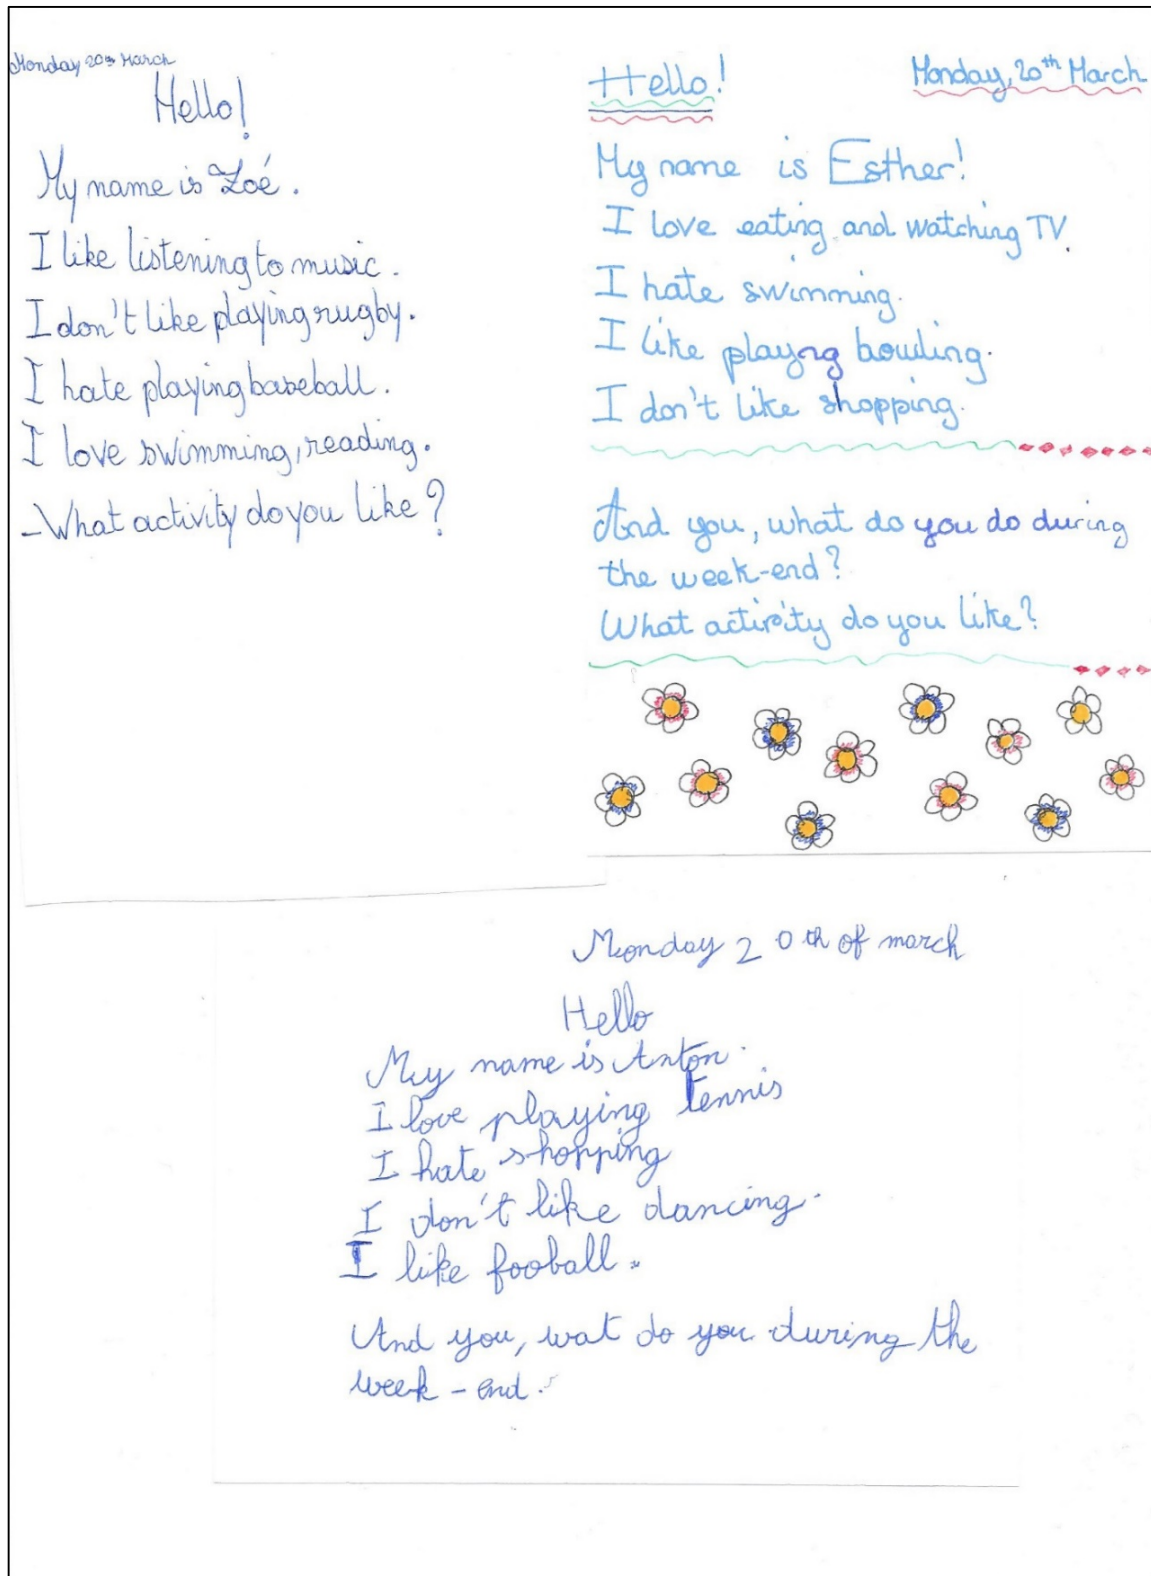 Monday 20th March
Hello!
My name is Zoé.
I like listening to music.
I don't like playing rugby.
I hate playing baseball.
I love swimming, reading.
-What activity do you like?
Hello!
Monday, 20th March
My name is Esther!
I love eating and watching TV.
I hate swimming.
I like playng bowling.
I don't like shopping.
And you, what do you do during
the week-end?
What activity do you like?
Monday 20th of march
Hello
My name is Anton.
I love playing tennis
I hate shopping
I don't like dancing.
I like fooball.
And you, wat do you during the
week-end.